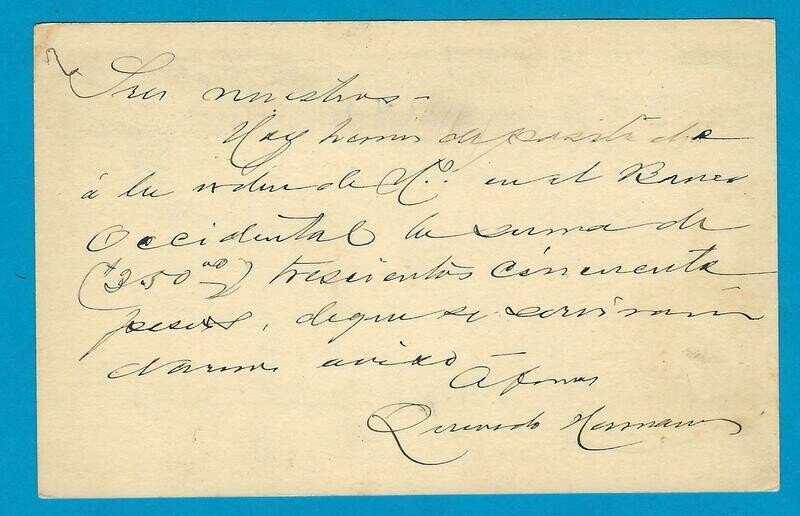 Sres nuestros -
Hoy hemos depositado
á la orden de Vs. en el Banco
Occidental la suma de
($350.00) trescientos cincuenta
pesos, de que se servirán
darnos aviso
Quevedo Hermanos